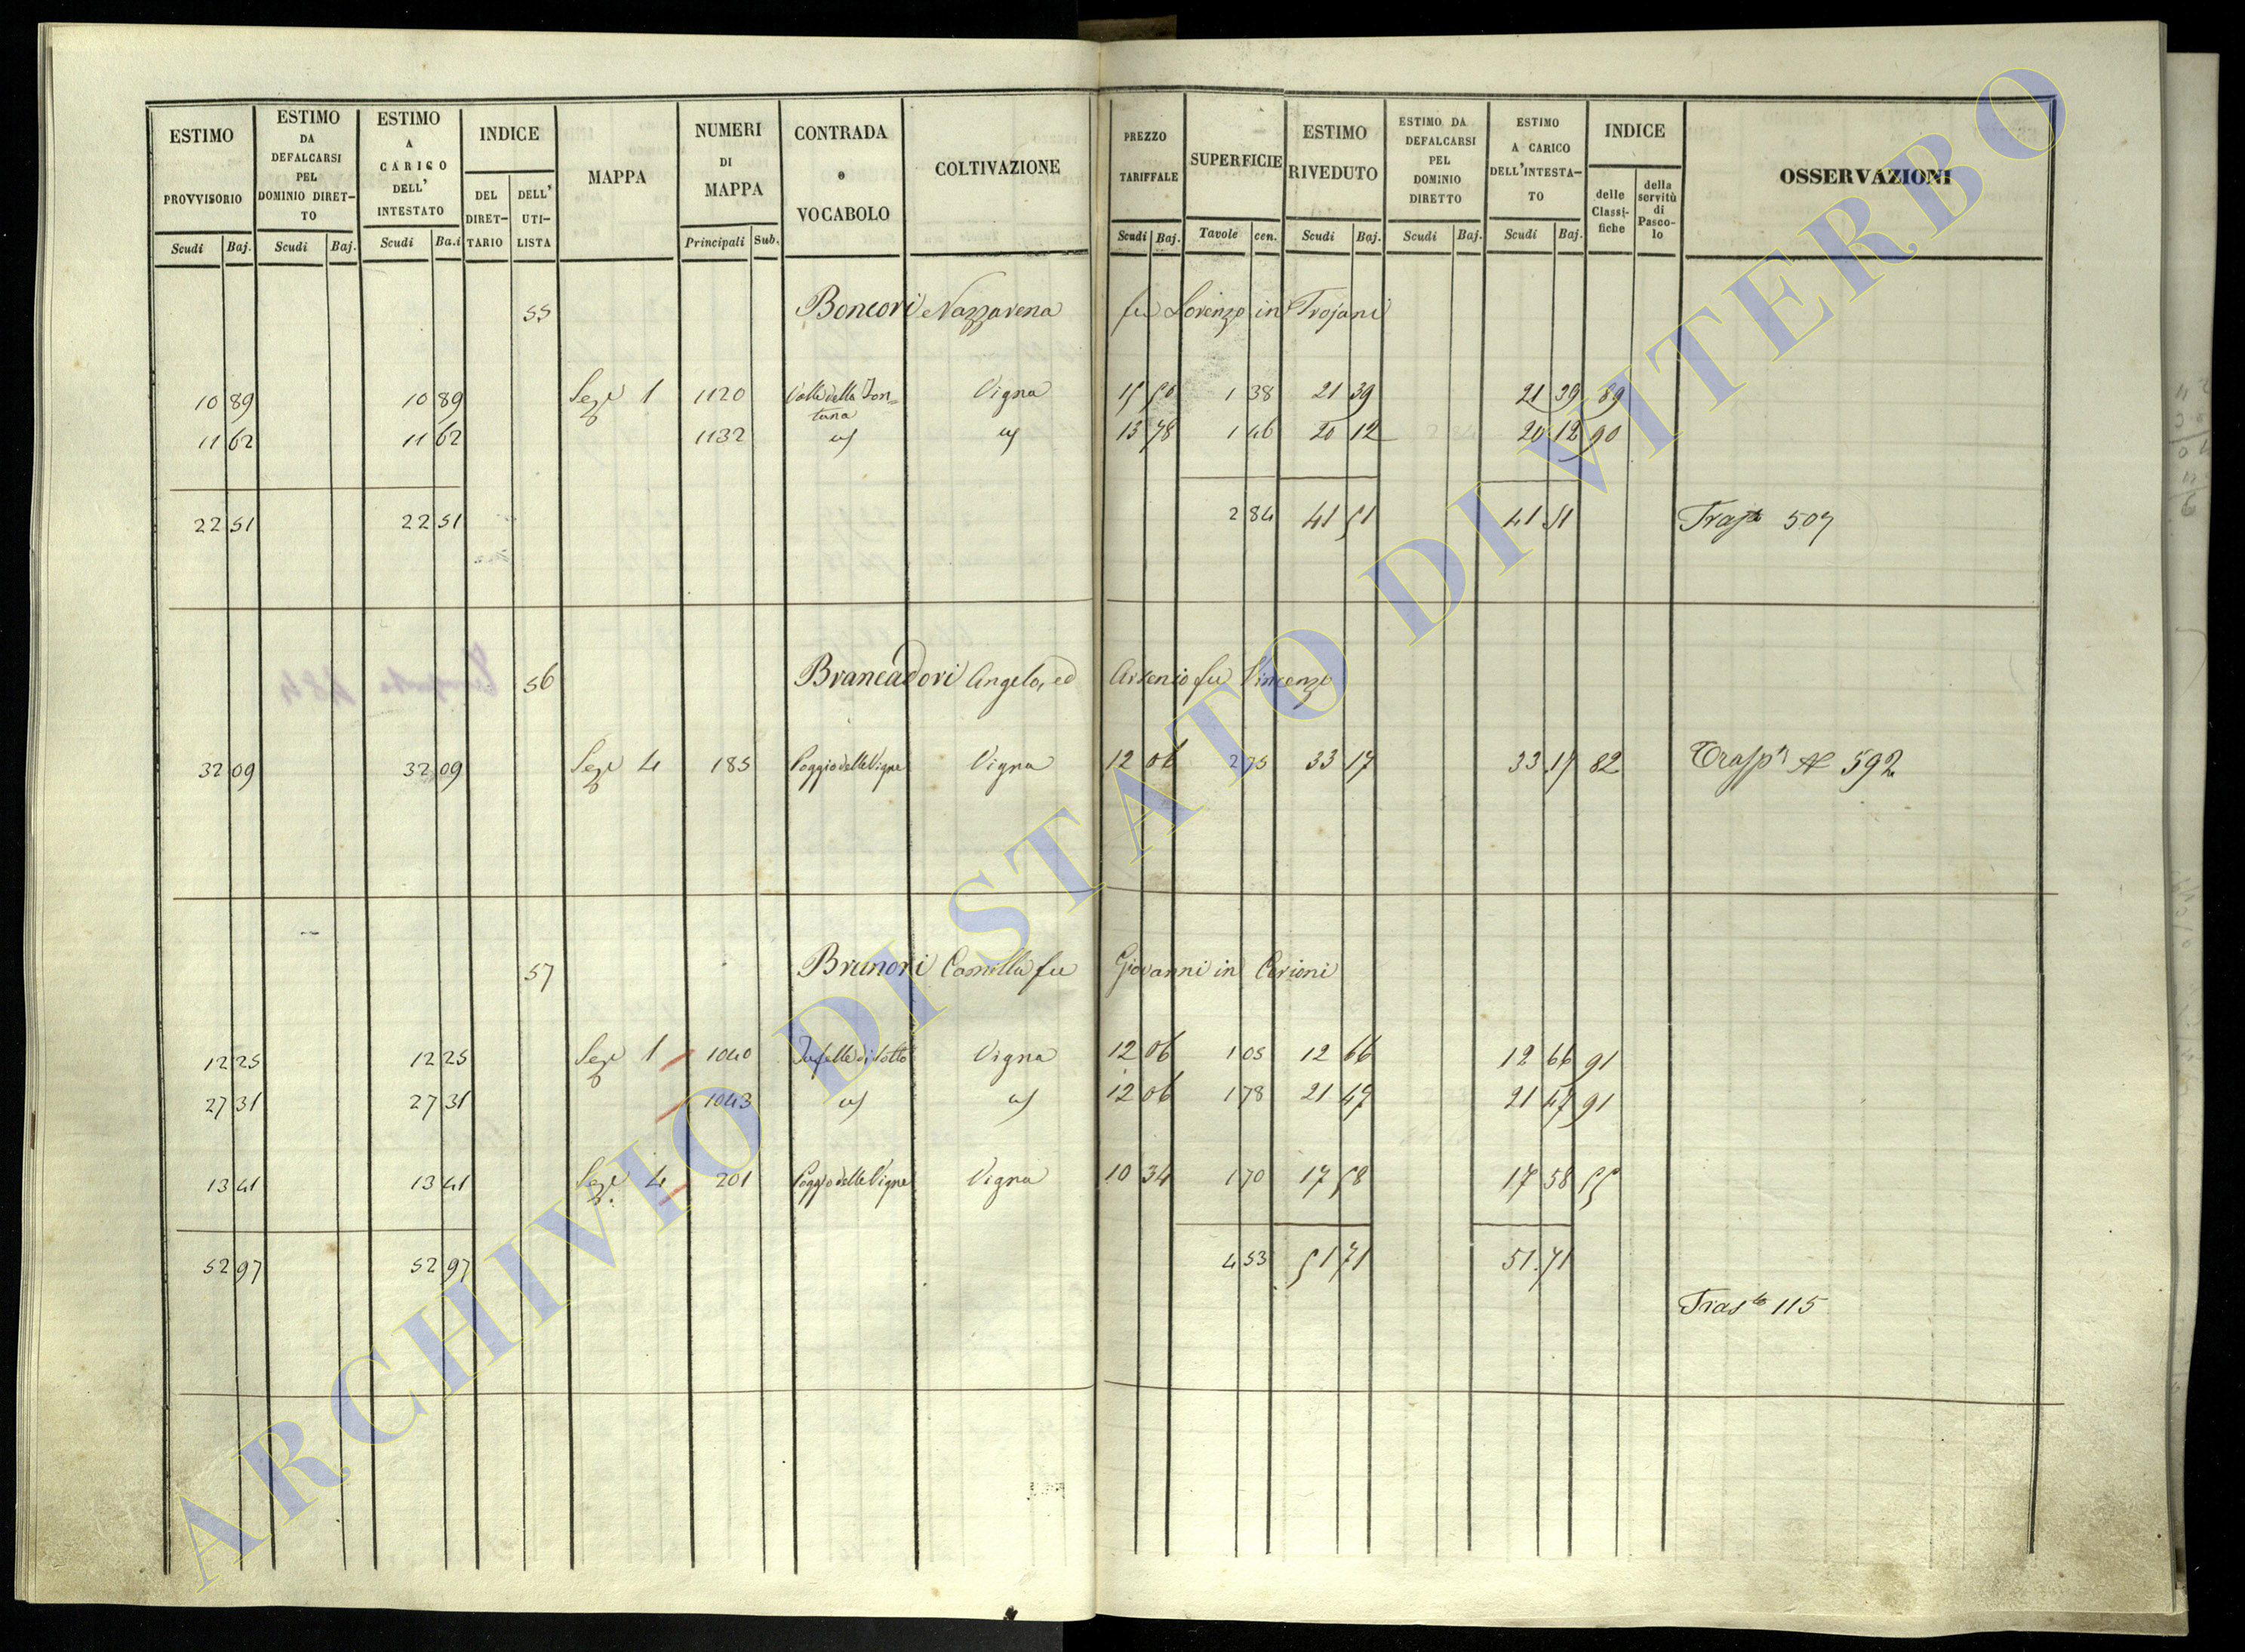 ESTIMO PROVVISORIO Scudi Baj. ESTIMO DA DEFALCARSI PEL DOMINIO DIRET-TO Scudi Baj. ESTIMO A CARICO DELL' INTESTATO Scudi Ba.i INDICE DEL DIRET-TARIO DELL' UTI-LISTA MAPPA NUMERI DI MAPPA Principali Sub. CONTRADA o VOCABOLO COLTIVAZIONE PREZZO TARIFFALE Scudi Baj. SUPERFICIE Tavole cen. ESTIMO RIVEDUTO Scudi Baj. ESTIMO DA DEFALCARSI PEL DOMINIO DIRETTO Scudi Baj. ESTIMO A CARICO DELL'INTESTA-TO Scudi Baj. INDICE delle Classi-fiche della servitù di Pasco-lo OSSERVAZIONI
55 Boncori Nazzarena fu Lorenzo in Trojani
10 89 10 89 Sez.e 1 1120 Valle della Fon=
tana Vigna 15 50 1 38 21 39 21 39 89
11 62 11 62 1132 id id 13 78 1 46 20 12 20 12 90
22 51 22 51 2 84 41 51 41 51 507
56 Brancadori Angelo, ed Arsenio fu Vincenzo
32 09 32 09 Sez.e 4 185 Poggio delle Vigne Vigna 12 06 2 75 33 17 33 17 82 Trasp.to Al 592
57 Brunori Camilla fu Giovanni in Cerioni
12 25 12 25 Sez.e 1 1040 di sotto Vigna 12 06 1 05 12 66 12 66 91
27 31 27 31 1043 id id 12 06 1 78 21 47 21 47 91
13 41 13 41 Sez.e 4 201 Poggio delle Vigne Vigna 10 34 1 70 17 58 17 58 55
52 97 52 97 4 53 51 71 51 71
Tras.to 115
ARCHIVIO DI STATO DI VITERBO